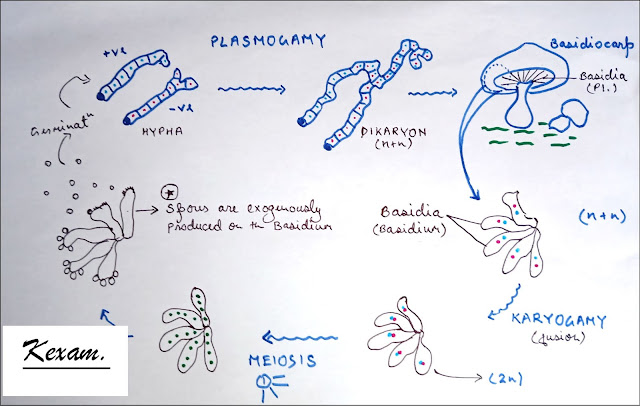 PLASMOGAMY
+ve
-ve
HYPHA
DIKARYON
(n+n)
Basidiocarp
Basidia
(Pl.)
Germinatⁿ
Spores are exogenously
produced on the Basidium
Basidia
(Basidium)
(n+n)
KARYOGAMY
(fusion)
(2n)
MEIOSIS
Kexam.